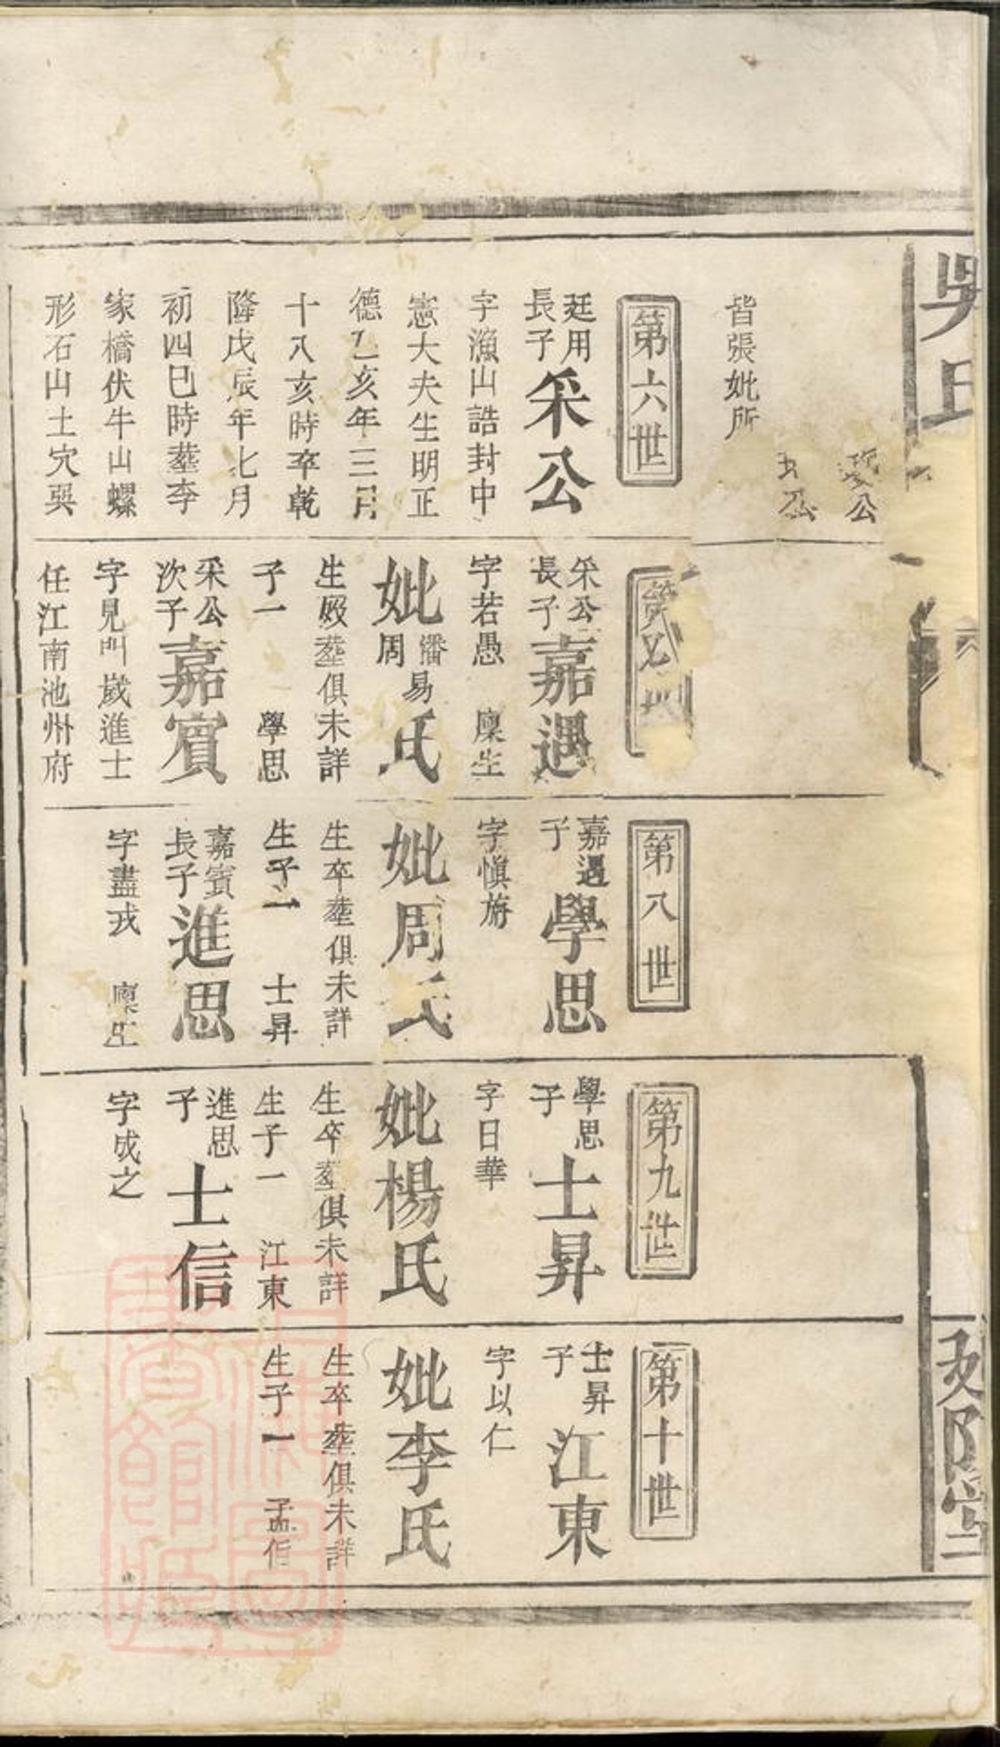 吳氏
公
公
皆張妣所
第六世
廷用
長子
釆公
字漁山誥封中
憲大夫生明正
德乙亥年三月
十八亥時卒乾
隆戊辰年七月
初四巳時塟李
家橋伏牛山螺
形石山土穴巽
釆公
長子
嘉遇
字若愚 廩生
妣潘周易氏
生歿塟俱未詳
子一 學思
釆公
次子
嘉賓
字見門 歲進士
任江南池州府
第八世
嘉遇
子
學思
字愼旃
妣周氏
生卒塟俱未詳
生子一 士昇
嘉賓
長子
進思
字盡戎 廩生
第九世
學思
子
士昇
字日華
妣楊氏
生卒塟俱未詳
生子一 江東
進思
子
士信
字成之
第十世
士昇
子
江東
字以仁
妣李氏
生卒塟俱未詳
生子一 孟信